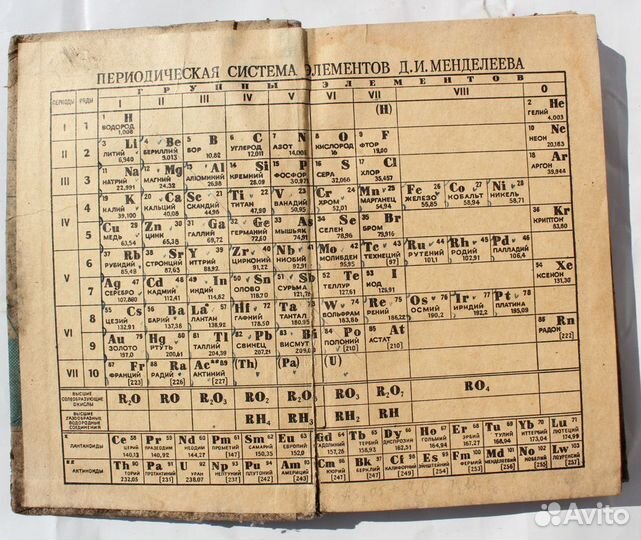 ПЕРИОДИЧЕСКАЯ СИСТЕМА ЭЛЕМЕНТОВ Д.И.МЕНДЕЛЕЕВА
ПЕРИОДЫ РЯДЫ ГРУППЫ ЭЛЕМЕНТОВ
I II III IV V VI VII VIII 0
I 1 1 H (H) 2 He
ВОДОРОД ГЕЛИЙ
1,008 4,003
II 2 3 Li 4 Be 5 B 6 C 7 N 8 O 9 F 10 Ne
ЛИТИЙ БЕРИЛЛИЙ БОР УГЛЕРОД АЗОТ КИСЛОРОД ФТОР НЕОН
6,940 9,013 10,82 12,011 14,008 16 19,00 20,183
III 3 11 Na 12 Mg 13 Al 14 Si 15 P 16 S 17 Cl 18 Ar
НАТРИЙ МАГНИЙ АЛЮМИНИЙ КРЕМНИЙ ФОСФОР СЕРА ХЛОР АРГОН
22,991 24,32 26,98 28,09 30,975 32,066 35,457 39,944
IV 4 19 K 20 Ca Sc 22 Ti 23 V 24 Cr Mn 25 Fe 26 Co 27 Ni 28
КАЛИЙ КАЛЬЦИЙ СКАНДИЙ ТИТАН ВАНАДИЙ ХРОМ МАРГАНЕЦ ЖЕЛЕЗО КОБАЛЬТ НИКЕЛЬ
39,100 40,08 44,96 47,90 50,95 52,01 54,94 55,85 58,94 58,71
5 Cu Zn Ga Ge 33 34 Se 35 Br 36 Kr
МЕДЬ ЦИНК ГАЛЛИЙ ГЕРМАНИЙ МЫШЬЯК СЕЛЕН БРОМ КРИПТОН
63,54 65,38 69,72 72,60 74,91 78,96 79,916 83,80
V 6 37 Rb 38 Sr 39 Y Zr 40 Nb 41 Mo 42 Tc 43 Ru 44 Rh 45 Pd 46
РУБИДИЙ СТРОНЦИЙ ИТТРИЙ ЦИРКОНИЙ НИОБИЙ МОЛИБДЕН ТЕХНЕЦИЙ РУТЕНИЙ РОДИЙ ПАЛЛАДИЙ
85,48 87,63 88,92 91,22 92,91 95,95 [97] 101,1 102,91 106,4
7 Ag 47 Cd 48 In 49 50 Sn 51 Sb 52 Te 53 I 54 Xe
СЕРЕБРО КАДМИЙ ИНДИЙ ОЛОВО СУРЬМА ТЕЛЛУР ИОД КСЕНОН
107,880 112,41 114,82 118,70 127,61 126,91 131,30
VI 8 55 Cs 56 Ba La Hf Ta W Re 75 Os 76 Ir 77 Pt 78
ЦЕЗИЙ БАРИЙ ЛАНТАН ГАФНИЙ ТАНТАЛ ВОЛЬФРАМ РЕНИЙ ОСМИЙ ИРИДИЙ ПЛАТИНА
132,91 137,36 138,92 178,50 180,95 183,86 186,22 190,2 192,2 195,09
9 Au 79 Hg 80 81 Tl 82 Pb 83 Bi 84 Po 85 At 86 Rn
ЗОЛОТО РТУТЬ ТАЛЛИЙ СВИНЕЦ ВИСМУТ ПОЛОНИЙ АСТАТ РАДОН
197,0 200,61 204,39 207,21 209,00 [210] [210] [222]
VII 10 87 Fr 88 Ra Ac** 89 (Th) (Pa) (U)
ФРАНЦИЙ РАДИЙ АКТИНИЙ
[223] [226] [227]
ВЫСШИЕ СОЛЕОБРАЗУЮЩИЕ ОКИСЛЫ R₂O RO R₂O₃ RO₂ R₂O₅ RO₃ R₂O₇ RO₄
ВЫСШИЕ ГАЗООБРАЗНЫЕ ВОДОРОДНЫЕ СОЕДИНЕНИЯ RH₄ RH₃ RH₂ RH
* ЛАНТАНОИДЫ Ce 58 Pr 59 Nd 60 Pm 61 Sm 62 Eu 63 Gd 64 Tb 65 Dy 66 Ho 67 Er 68 Tu 69 Yb 70 Lu 71
ЦЕРИЙ ПРАЗЕОДИМ НЕОДИМ ПРОМЕТИЙ САМАРИЙ ЕВРОПИЙ ГАДОЛИНИЙ ТЕРБИЙ ДИСПРОЗИЙ ГОЛЬМИЙ ЭРБИЙ ТУЛИЙ ИТТЕРБИЙ ЛЮТЕЦИЙ
140,13 140,92 144,27 [147] 150,35 152,0 157,26 158,93 162,51 164,94 167,27 168,94 173,04 174,99
** АКТИНОИДЫ Th 90 Pa 91 U 92 Np 93 Pu 94 Am 95 Cm 96 Bk 97 Cf 98 Es 99 Fm 100 Md 101 No 102 Lw 103
ТОРИЙ ПРОТАКТИНИЙ УРАН НЕПТУНИЙ ПЛУТОНИЙ АМЕРИЦИЙ КЮРИЙ БЕРКЛИЙ КАЛИФОРНИЙ ЭЙНШТЕЙНИЙ ФЕРМИЙ МЕНДЕЛЕВИЙ НОБЕЛИЙ ЛОУРЕНСИЙ
232,05 [231] 238,07 [237] [242] [243] [247] [249] [251] [254] [253] [256] [255] [257]
Avito